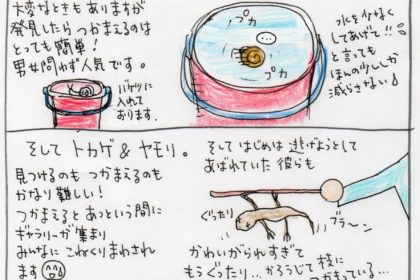 大変なときもありますが
発見したら つかまえるのは
とっても簡単！
男女問わず人気です。
バケツに
入れて
おります。
プカ
プカ
水を少なく
してあげて!!
と言っても
ほんの少ししか
減らさない
そして トカゲ & ヤモリ。
見つけるのも つかまえるのも
かなり難しい！
つかまえると あっという間に
ギャラリーが集まり
みんなに こねくりまわされ
ます
そして はじめは 逃げようとして
あばれていた 彼らも
ぐったり
ブラ〜ン
かわいがられすぎて
もうぐったり…かろうじて枝に
つかまっている…